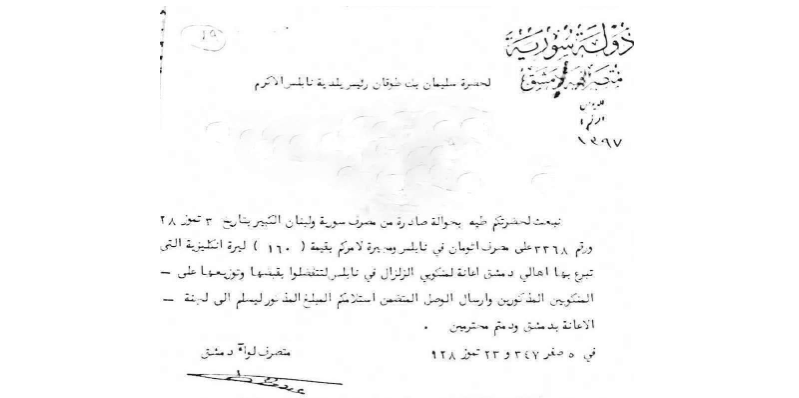 ١٩
دولة سورية
متصرفية لواء دمشق
الديوان
الرقم
١٣٩٧
لحضرة سليمان بك طوقان رئيس بلدية نابلس الاكرم
نبعث لحضرتكم طيه بحوالة صادرة من مصرف سورية ولبنان الكبير بتاريخ ٣ تموز ٢٨
ورقم ٣٣٦٨ على مصرف اثومان في نابلس ومجيرة لامركم بقيمة ( ١٦٠ ) ليرة انكليزية التي
تبرع بها اهالي دمشق اعانة لمنكوبي الزلزال في نابلس لتتفضلوا بقبضها وتوزيعها على —
المنكوبين المذكورين وارسال الوصل المتضمن استلامكم المبلغ المذكور ليسلم الى لجنة —
الاعانة بدمشق ودمتم محترمين .
في ٥ صفر ٣٤٧ و ٢٣ تموز ٩٢٨
متصرف لواء دمشق